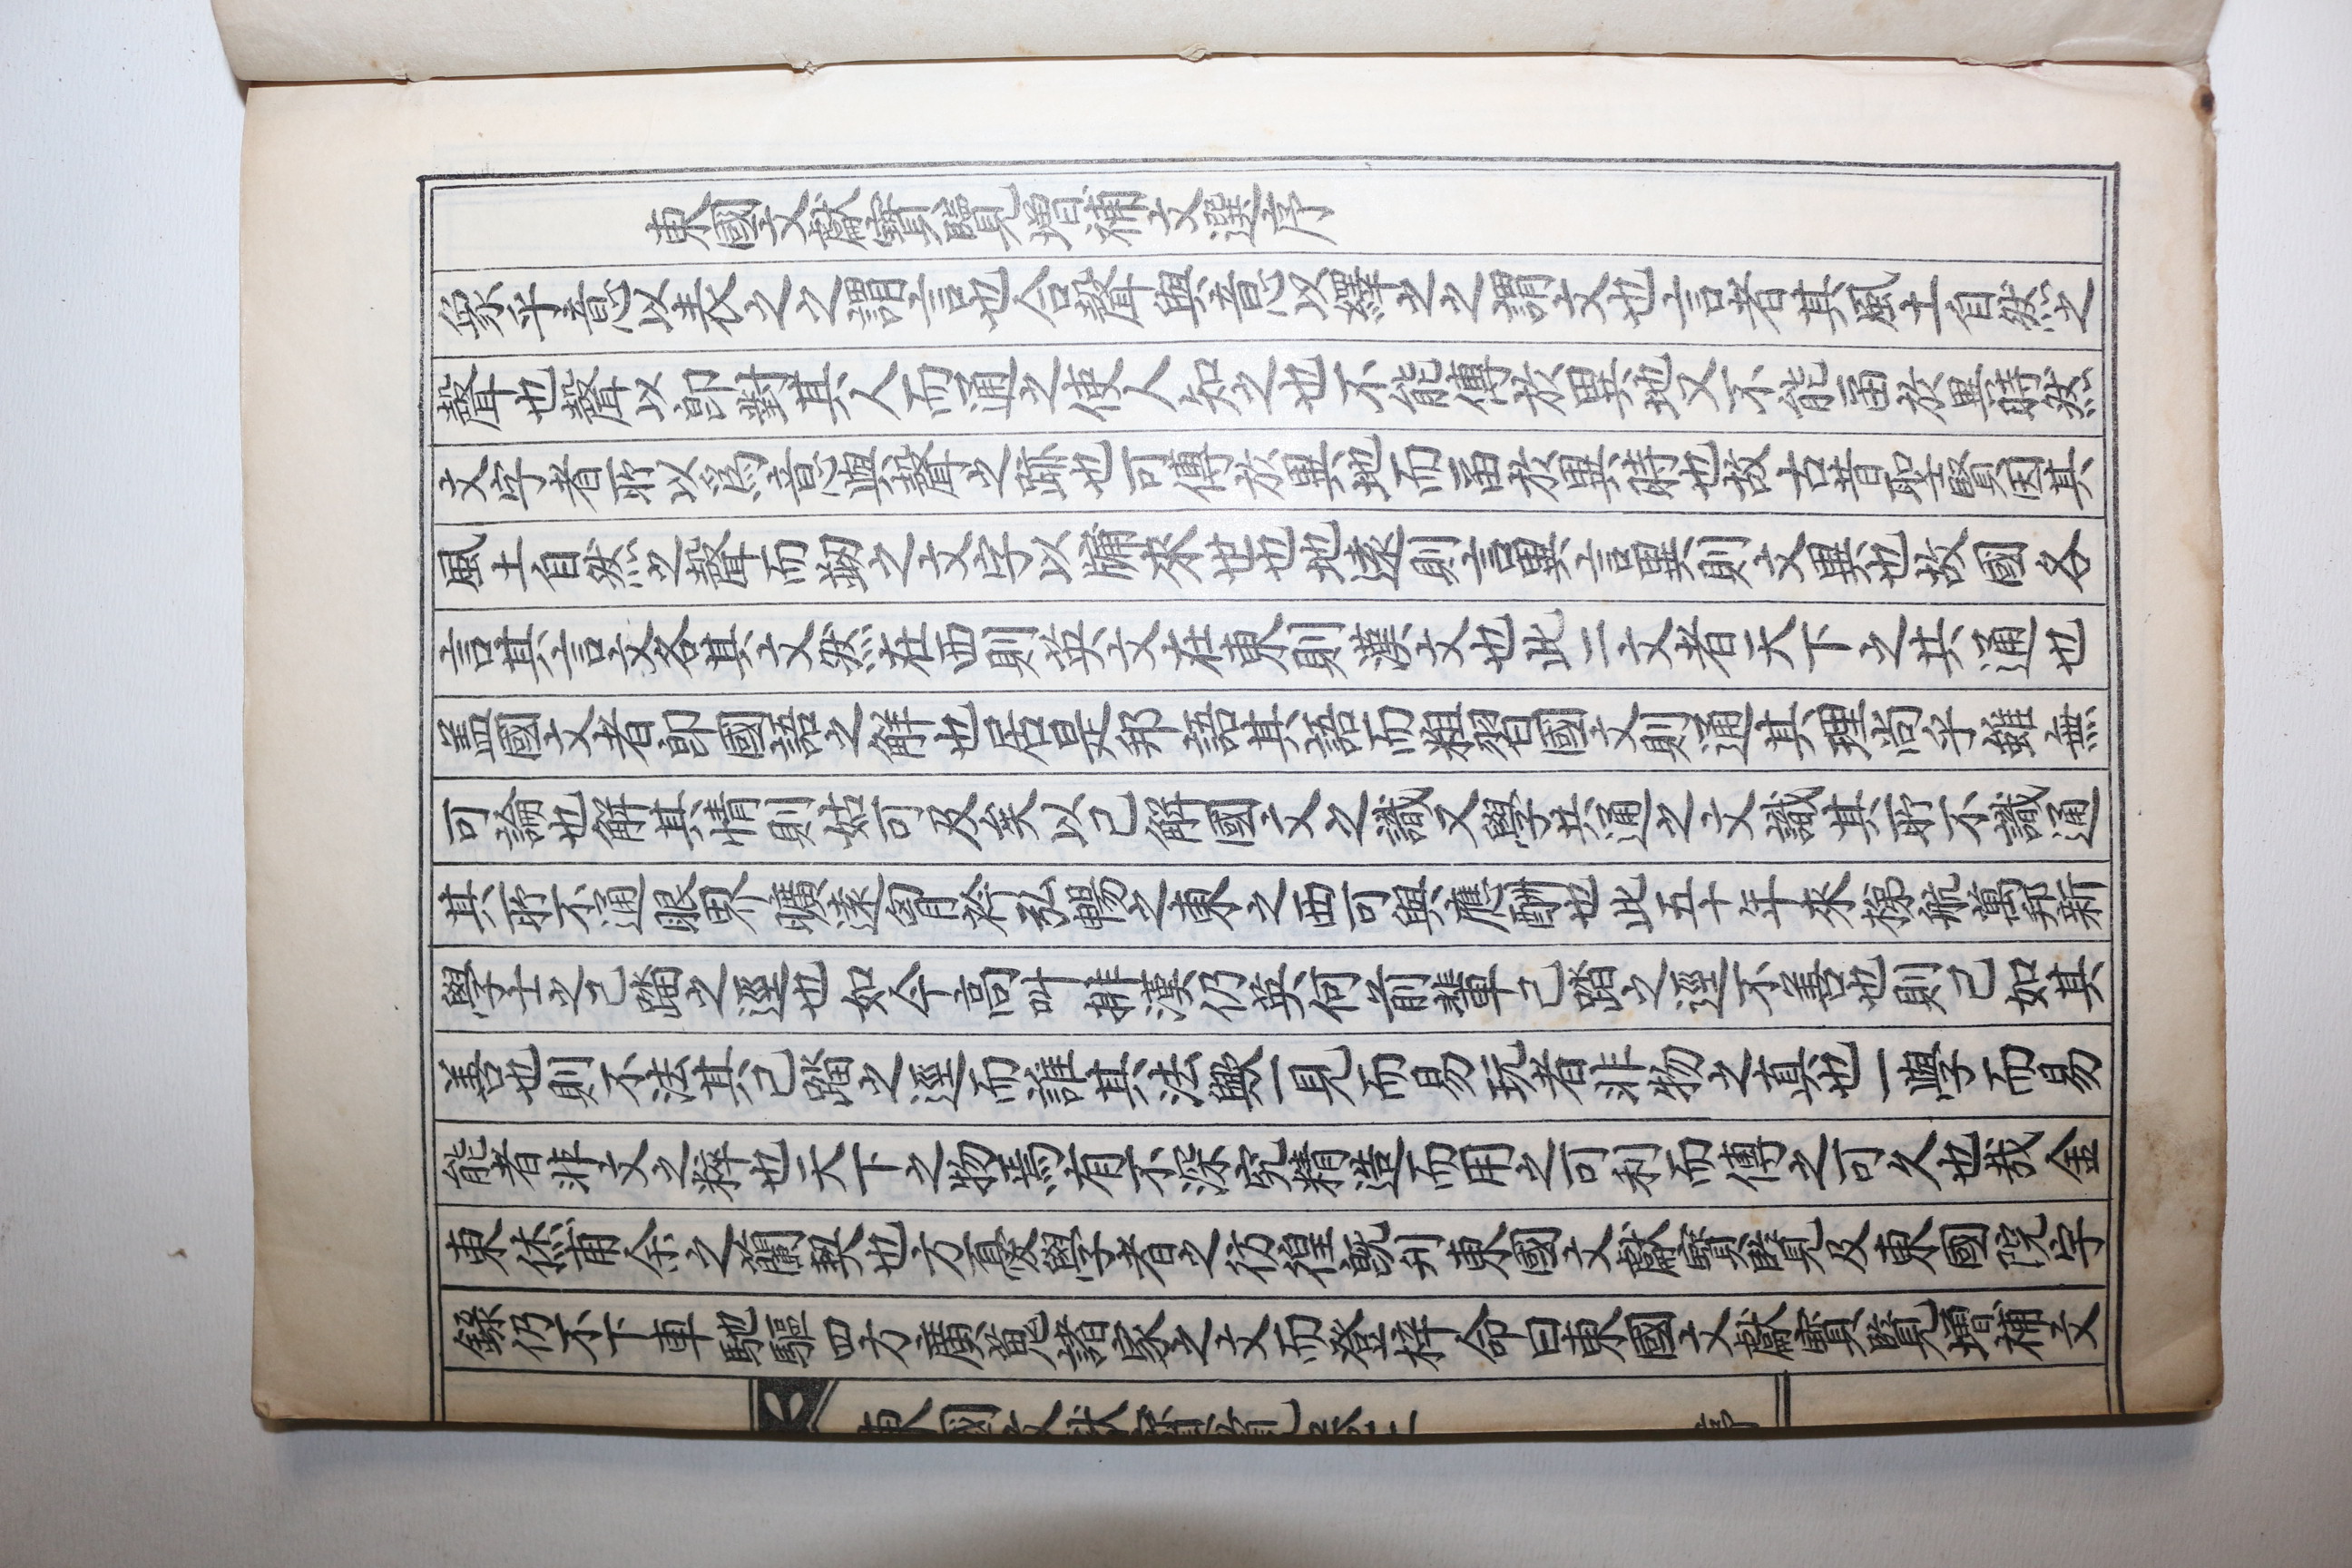 東國文獻寶覽增補文選序
象乎意以表之之謂言也合聲與意以繹之之謂文也言者其風土自然之
聲也聲以卽對其人而通之使人知之也不能傳於異地又不能畱於異時然
文字者所以爲意與聲之跡也可傳於異地而畱於異時也故古昔聖賢因其
風土自然之聲而刱之文字以牖來世也地遠則言異言異則文異也故國各
言其言文各其文然在西則英文在東則漢文也此二文者天下之共通也
盖國文者卽國語之解也居是邦語其語而粗習國文則通其理尚乎雖無
可論也解其情則姑可及矣以已解國文之識又學共通之文識其所不識通
其所不通眼界曠遠胷衿弘暢之東之西可與應酬也此五十年來梯航萬邦新
學士之己踏之逕也如今高叫排漢仍英何前輩己踏之逕不善也則己如其
善也則不法其己踏之逕而誰其法歟一見而易玩者非物之真也一學而易
能者非文之粹也天下之物焉有不深究精造而用之可利而傳之可久也哉金
東烋甫余之蘭契也方憂學者之彷徨旣刋東國文獻寶覽及東國院宇
錄仍不下車馳驅四方廣蒐諸家之文而登梓命曰東國文獻寶覽增補文
東國文獻寶覽卷三
序